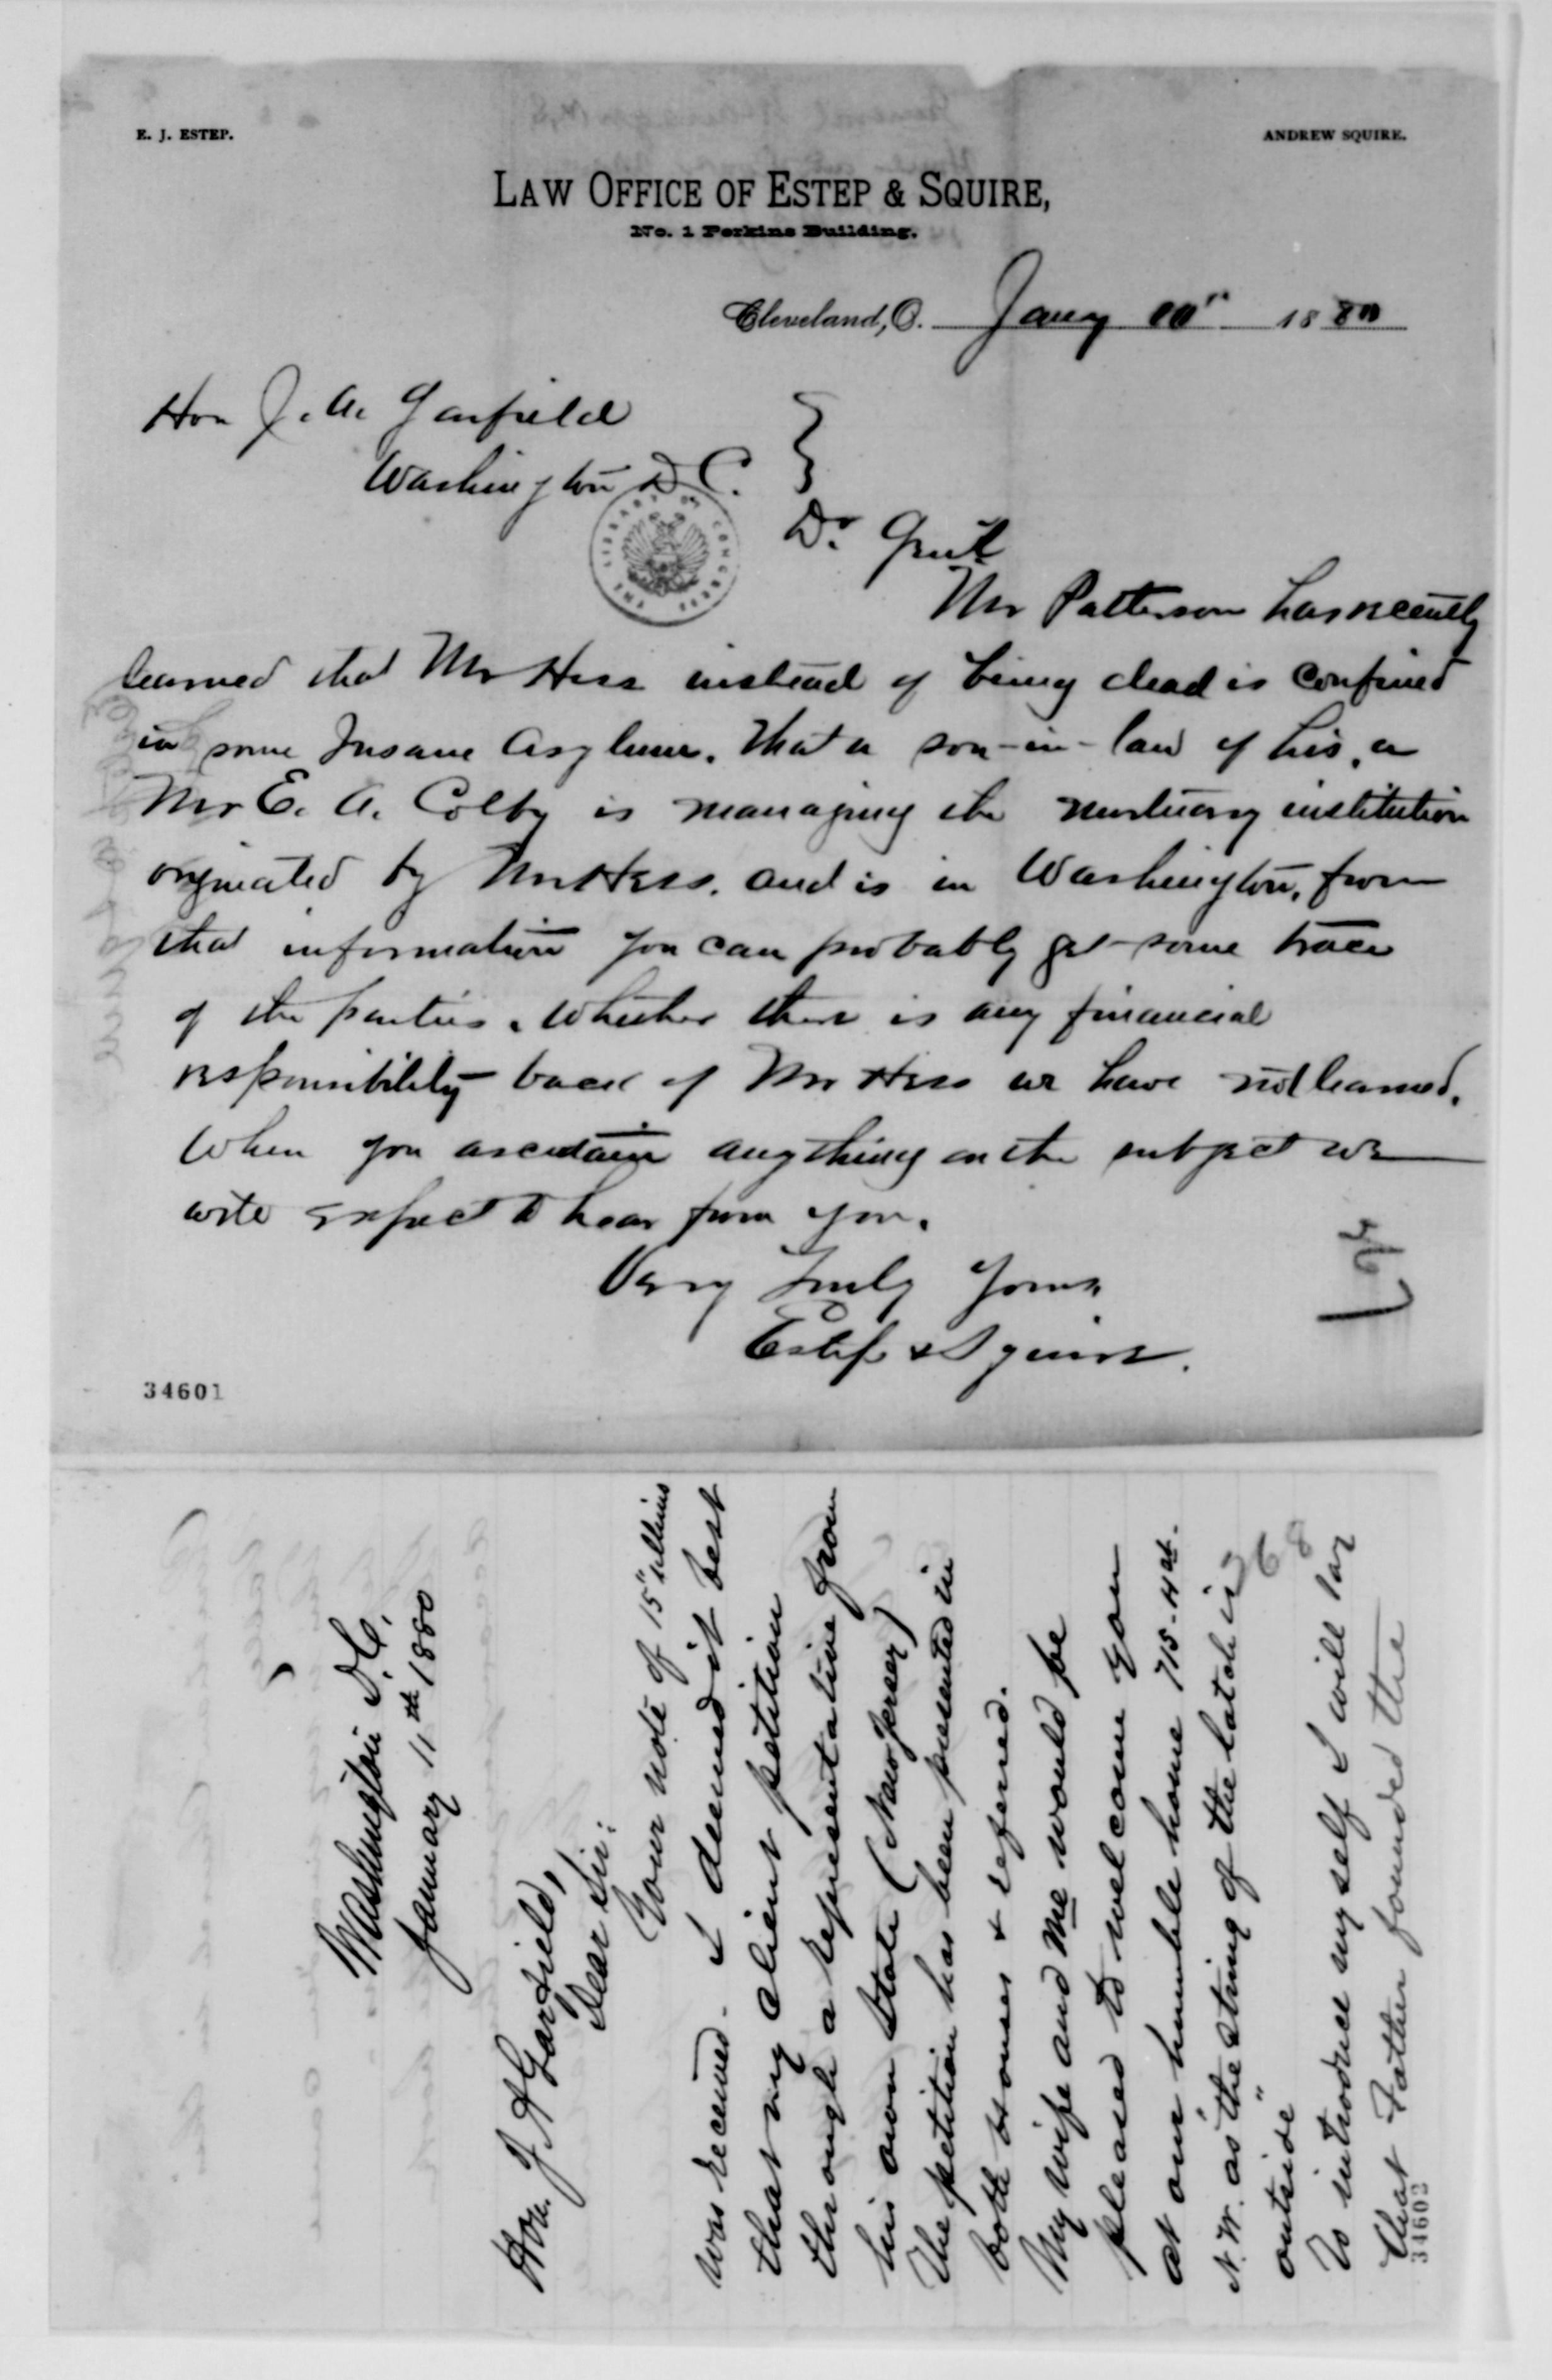 E. J. ESTEP.
ANDREW SQUIRE.
LAW OFFICE OF ESTEP & SQUIRE,
No. 1 Perkins Building.
Cleveland, O. Jany 10" 1880
Hon J. A. Garfield
Washington D C.
THE LIBRARY OF CONGRESS
Dr Genl
Mr Patterson has recently
learned that Mr Hess instead of being dead is confined
in some Insane Asylum. That a son-in-law of his, a
Mr E. A. Colby is managing the mortuary institution
originated by Mr Hess. and is in Washington, from
that information you can probably get some trace
of the parties. Whether there is any financial
responsibility back of Mr Hess we have not learned.
When you ascertain anything on the subject we
will expect to hear from you.
Very Truly Yours
Estep & Squire.
34601
Washington D.C.
January 11th 1880
Hon. J A Garfield,
Dear Sir:
Your note of 15" ultimo
was received. I deemed it best
that my client petition
through a representative from
his own State (New Jersey)
The petition has been presented in
both houses & referred.
My wife and me would be
pleased to welcome you
at our humble home 715-4 st.
N. W. as "the string of the latch is
outside"
To introduce my self I will say
that Father founded the
34602